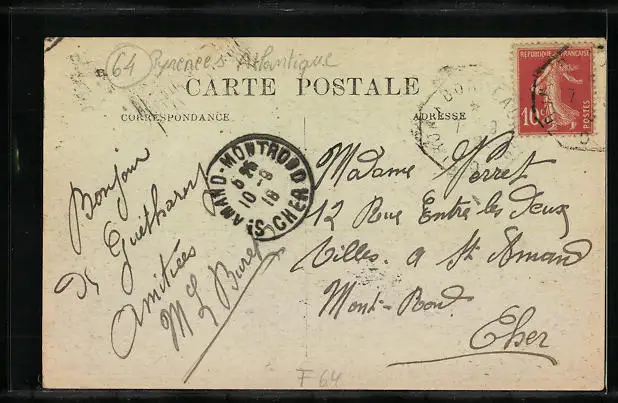 64 Pyrenées Atlantique
CARTE POSTALE
CORRESPONDANCE
ADRESSE
REPUBLIQUE FRANÇAISE
10c
POSTES
Bonjour
de Guéthary
Amitiées
M L Buret
ST AMAND-MONTROND
CHER
Madame Perret
12 Rue Entre les deux
Villes. a St Amand
Mont-Rond
Cher
F 64